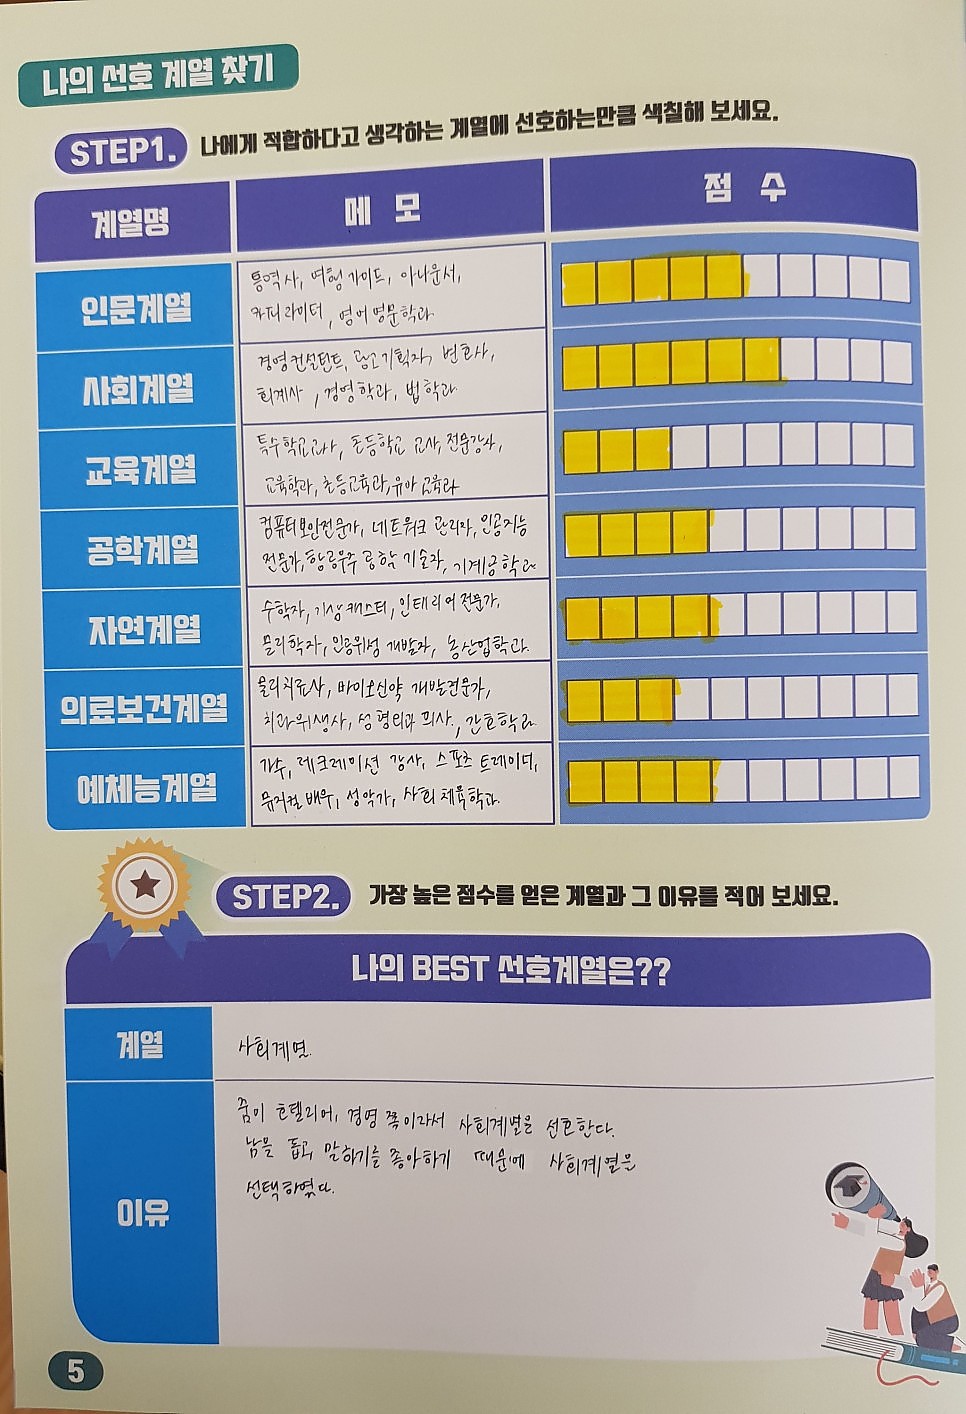 나의 선호 계열 찾기
STEP1. 나에게 적합하다고 생각하는 계열에 선호하는만큼 색칠해 보세요.
계열명 메 모 점 수
인문계열
통역사, 여행 가이드, 아나운서,
카피라이터, 영어영문학과
사회계열
경영컨설턴트, 광고기획자, 변호사,
회계사, 경영학과, 법학과
교육계열
특수학교교사, 초등학교 교사, 전문강사,
교육학과, 초등교육과, 유아교육과
공학계열
컴퓨터보안전문가, 네트워크 관리자, 인공지능
전문가, 항공우주 공학 기술자, 기계공학과
자연계열
수학자, 기상캐스터, 인테리어 전문가,
물리학자, 인공위성 개발자, 농산업학과.
의료보건계열
물리치료사, 바이오신약 개발전문가,
치과위생사, 성형외과 의사, 간호학과
예체능계열
가수, 레크레이션 강사, 스포츠 트레이너,
뮤지컬 배우, 성악가, 사회체육학과.
STEP2. 가장 높은 점수를 얻은 계열과 그 이유를 적어 보세요.
나의 BEST 선호계열은??
계열 사회계열.
이유
꿈이 호텔리어, 경영 쪽이라서 사회계열을 선호한다.
남을 돕고, 말하기를 좋아하기 때문에 사회계열을
선택하였다.
5